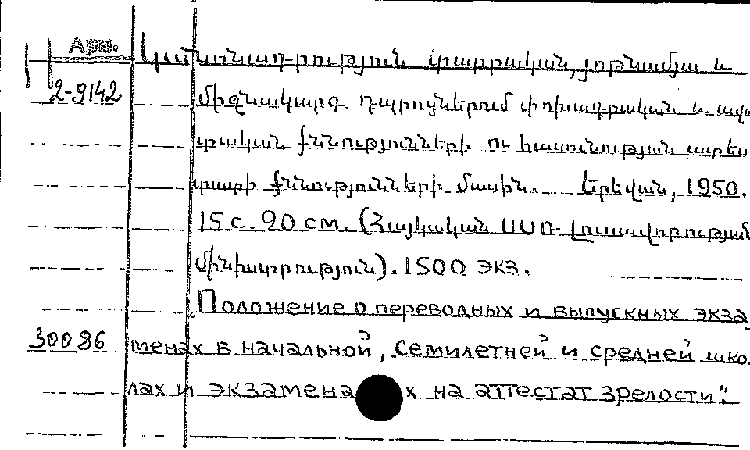 Арм.
Կանոնադրություն տարրական, յոթնամյա և
2-9142 միջնակարգ դպրոցներում փոխադրական և ավար
տական քննությունների ու հասունության ատես
տատի քննությունների մասին. Երևան, 1950.
15 с. 20 см. (Հայկական ՍՍՌ Լուսավորության
մինիստրություն). 1500 экз.
Положение о переводных и выпускных экза
30086 менах в начальной, семилетней и средней шко
лах и экзаменах на аттестат зрелости".